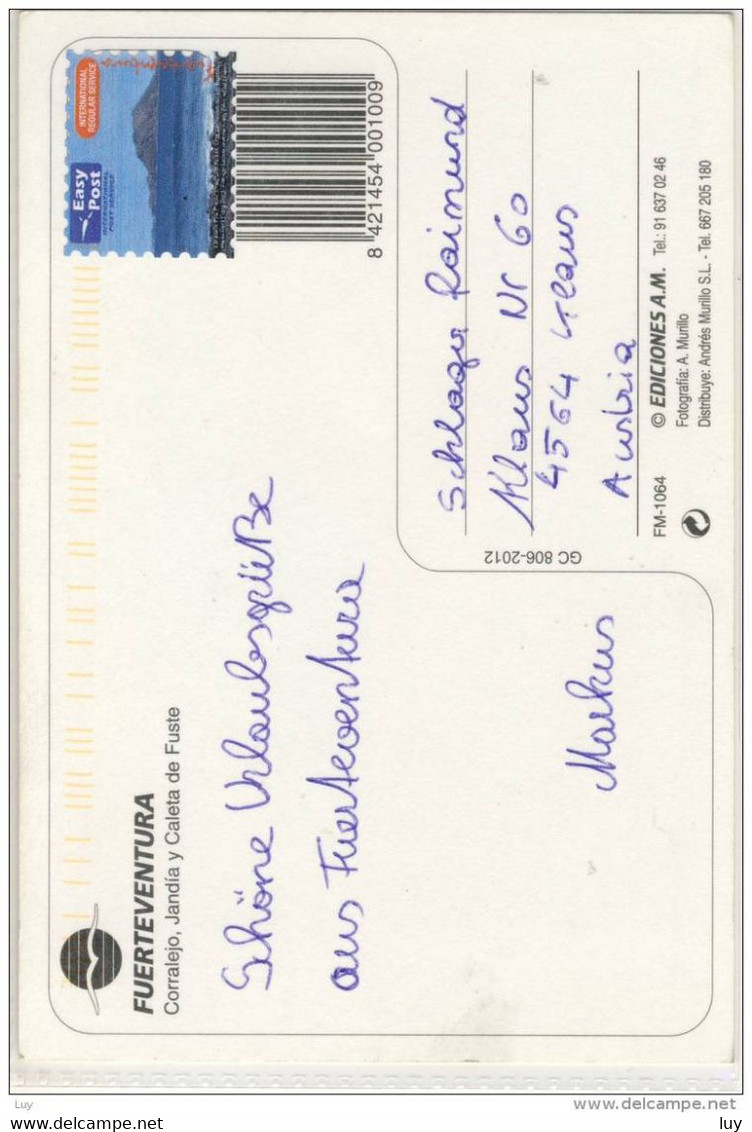 FUERTEVENTURA
Corralejo, Jandía y Caleta de Fuste
Schöne Urlaubsgrüße
aus Fuerteventura
Markus
INTERNATIONAL
REGULAR SERVICE
Fuerteventura
Easy
Post
INTERNATIONAL
POST SERVICE
8 421454 001009
Raimund
Klaus Nr 60
4564 Klaus
Austria
GC 806-2012
FM-1064
© EDICIONES A.M. Tel.: 91 637 02 46
Fotografía: A. Murillo
Distribuye: Andrés Murillo S.L. - Tel. 667 205 180
Luy
www.delcampe.net
luy